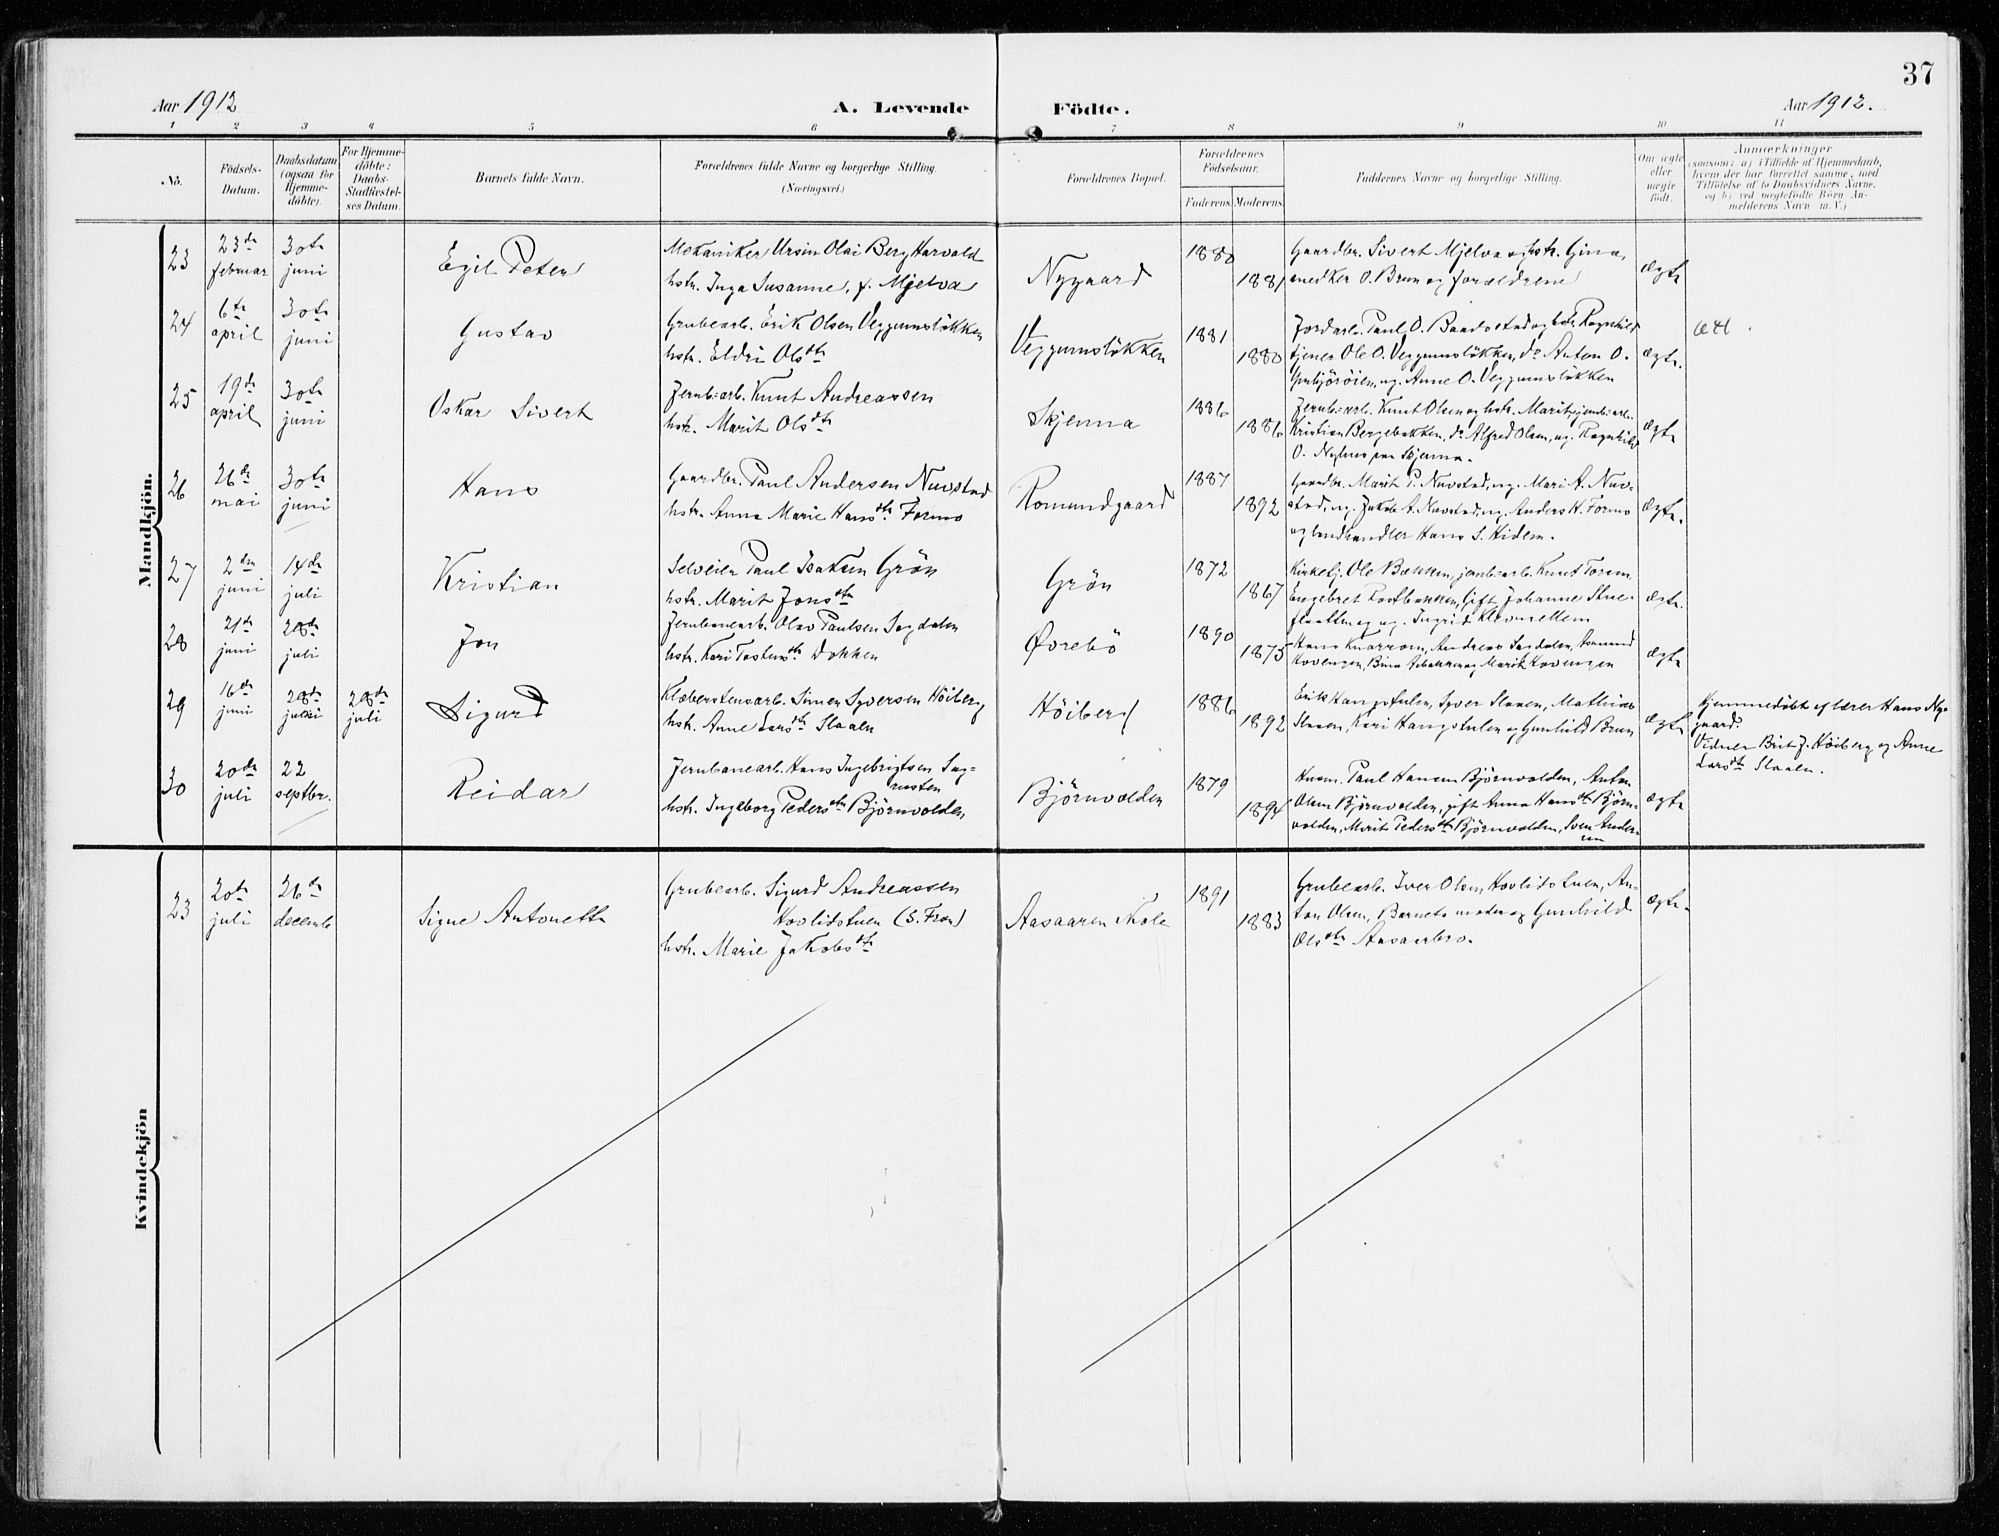 37
Aar 1912
A. Levende Födte.
Aar 1912.
1 2 3 4 5 6 7 8 9 10 11
No.
Födsels-
Datum.
Daabsdatum
(ogsaa for
Hjemme-
döbte).
For Hjemme-
döbte:
Daabs-
Stadfæstel-
ses Datum.
Barnets fulde Navn.
Forældrenes fulde Navne og borgerlige Stilling.
(Næringsvei.)
Forældrenes Bopæl.
Forældrenes
Födselsaar.
Faderens Moderens
Faddernes Navne og borgerlige Stilling.
Om ægte
eller
uægte
födt.
Anmærkninger
(saasom: a) i Tilfælde af Hjemmedaab,
hvem der har forrettet samme, med
Tilföielse af to Daabsvidners Navne,
og b) ved uægtefödte Börn An-
melderens Navn m. V.)
Mandkjön.
23
23de
februar
30te
juni
Egil Peter
Mekaniker Ursin Olai Berg Harvold
hstr. Inga Susanne, f. Mjelva
Nygaard
1880
1881
Gaardbr. Sivert Mjelva og hstr. Gina,
snedker O. Brun og forældrene
ægte
24
6te
april
30te
juni
Gustav
Grubearb. Erik Olsen Veggumslökken
hstr. Eldri Olsdtr
Veggumslökken
1881
1880
Jordarb. Paul O. Baadstad og hstr. Ragnhild
tjener Ole O. Veggumslökken, do Anton O.
og Anne O. Veggumslökken
ægte.
25
19de
april
30te
juni
Oskar Sivert
Jernb:arb. Knut Andreassen
hstr. Marit Olsdtr
Skjenna
1886
1886
Jernb:arb. Knut Olsen og hstr. Marit, jernb:arb.
Kristian Bergebakken, do Alfred Olsen, ug. Ragnhild
O. Nyhus paa Skjenna.
ægte
26
26de
mai
30te
juni
Hans
Gaardbr. Paul Andersen Nuvstad
hstr. Anna Marie Hansdtr Formo
Romundgaard
1887
1892
Gaardbr. Marit P. Nuvstad, ug. Mari A. Nuv-
stad, ug. Jakob A. Nuvstad, ug. Anders H. Formo
og landhandler Hans S. Hidem.
ægte.
27
2den
juni
14de
juli
Kristian
Selveier Paul Isaksen Grön
hstr. Marit Jonsdtr
Grön
1872
1867
Kirketj. Ole Bakken, jernb:arb. Knut
Engebret gift Johanne Stue-
og ug. Ingrid
ægte.
28
21de
juni
28de
juli
Jon
Jernbanearb. Olav Paulsen Sagdalen
hstr. Kari Dokken
Øvrebö
1890
1875
Hans Andreas Sagdalen,
Hovengen, og Marit Hovengen
ægte
29
16de
juni
28de
juli
28de
juli
Sigurd
Klæberstensarb. Simen Syversen Höiberg
hstr. Anne Larsdtr Slaalen
Höiberg
1886
1892
Erik Hangstulen, Syver Slaaen, Mathias
Slaaen, Kari Hangstulen og Gunhild Brun
ægte
Hjemmedöbt af lærer Hans Ny-
gaard.
Vidner Brit J. Höiberg og Anne
Larsdtr Slaalen.
30
20de
juli
22
septbr.
Reidar
Jernbanearb. Hans Ingebrigtsen Sag-
rusten
hstr. Ingeborg Pedersdtr Björnvolden
Björnvolden
1879
1894
Husm. Paul Hansen Björnvolden, Anton
Olsen Björnvolden, gift Anna Hansdtr Björn-
volden, Marit Pedersdtr Björnvolden, Sven Ander-
sen
ægte
Kvindekjön
23
20de
juli
26de
decemb
Signe Antonette
Grubearb. Sigurd Andreassen
Hovlidstuen (S. Fron)
hstr. Marie Jakobsdtr
Aasaaren Skole
1891
1883
Grubearb. Iver Olsen, Hovlidstuen, An-
ton Olsen, Barnets moder og Gunhild
Olsdtr Aasaarbro.
ægte.